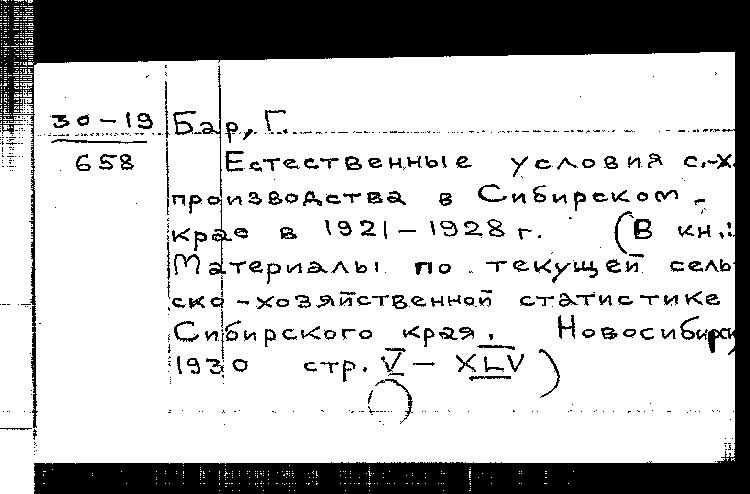 30-19
658
Бар, Г.
Естественные условия с.-х.
производства в Сибирском
крае в 1921-1928 г. (В кн.:
Материалы по текущей сель
ско-хозяйственной статистике
Сибирского края. Новосибирск,
1930 стр. V - XLV)